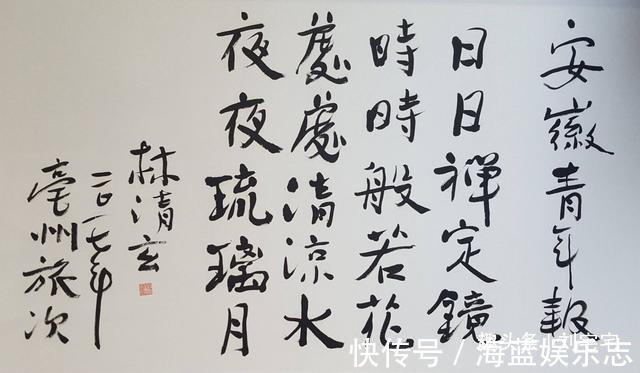 安徽青年報
日日禪定鏡
時時般若花
處處清涼水
夜夜琉璃月
林清玄
二〇一七年
亳州旅次
快传号／海蓝娱乐志